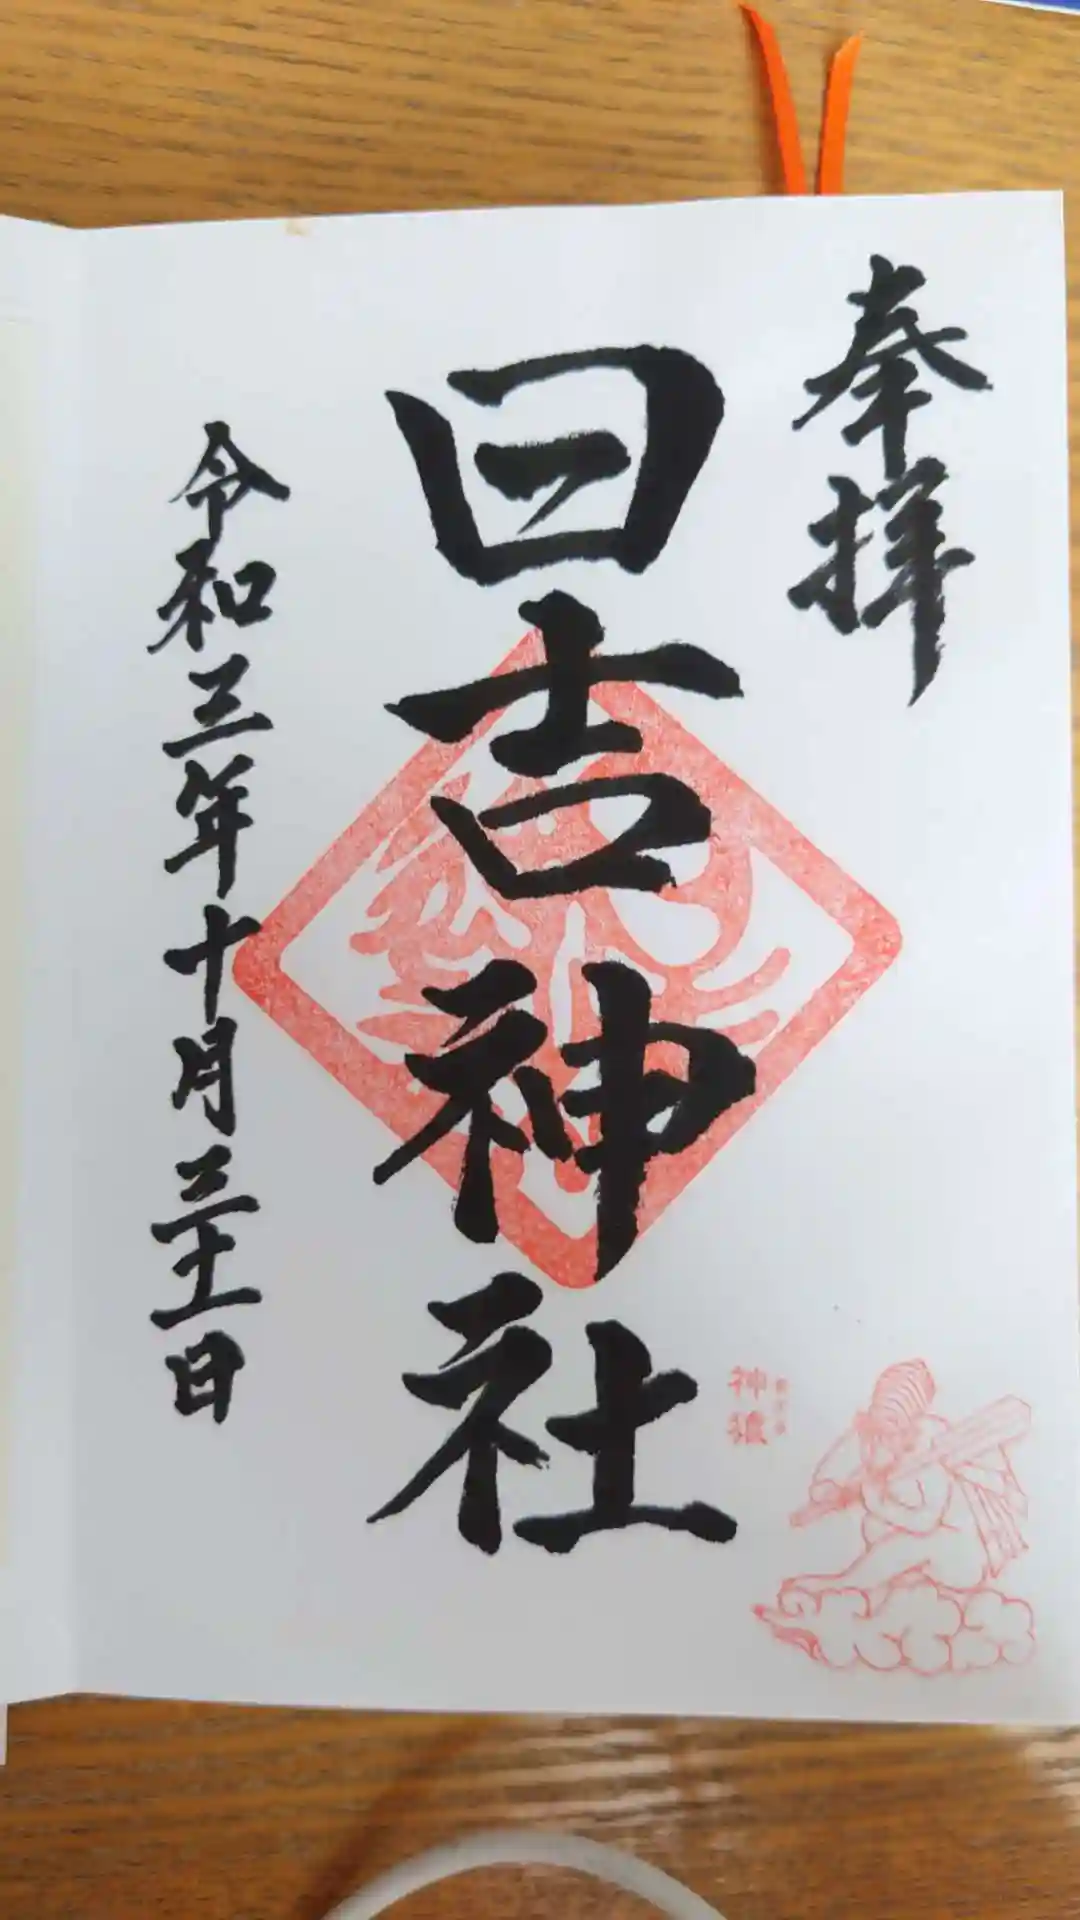 奉拝
日吉神社
神猿
令和三年十月三十一日